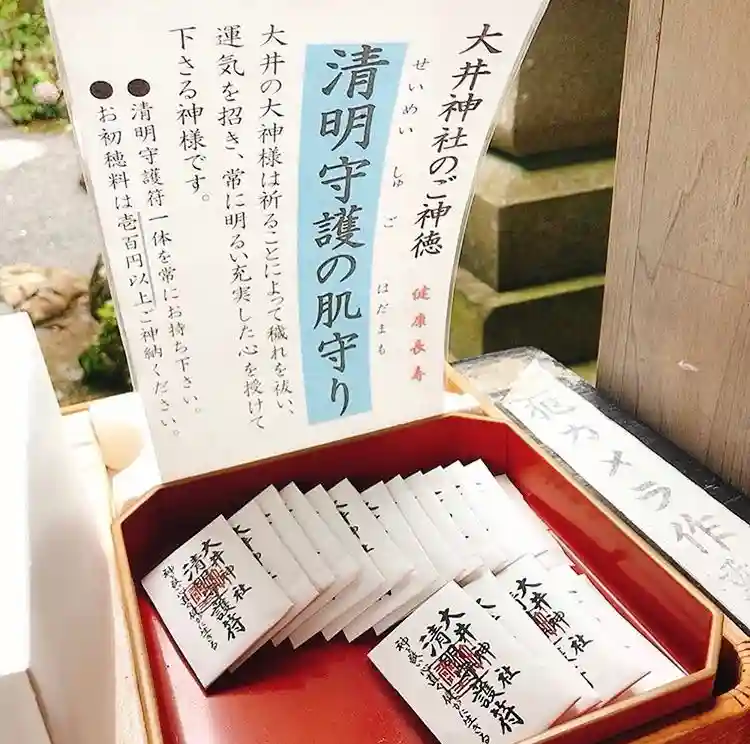 大井神社のご神徳
健康長寿
せいめい しゅご はだまも
清明守護の肌守り
大井の大神様は祈ることによって穢れを祓い、
運気を招き、常に明るい充実した心を授けて
下さる神様です。
●清明守護符一体を常にお持ち下さい。
●お初穂料は壱百円以上ご神納ください。
犯カメラ作
大井神社
清明守護符
大井神社
清明守護符
大井神社